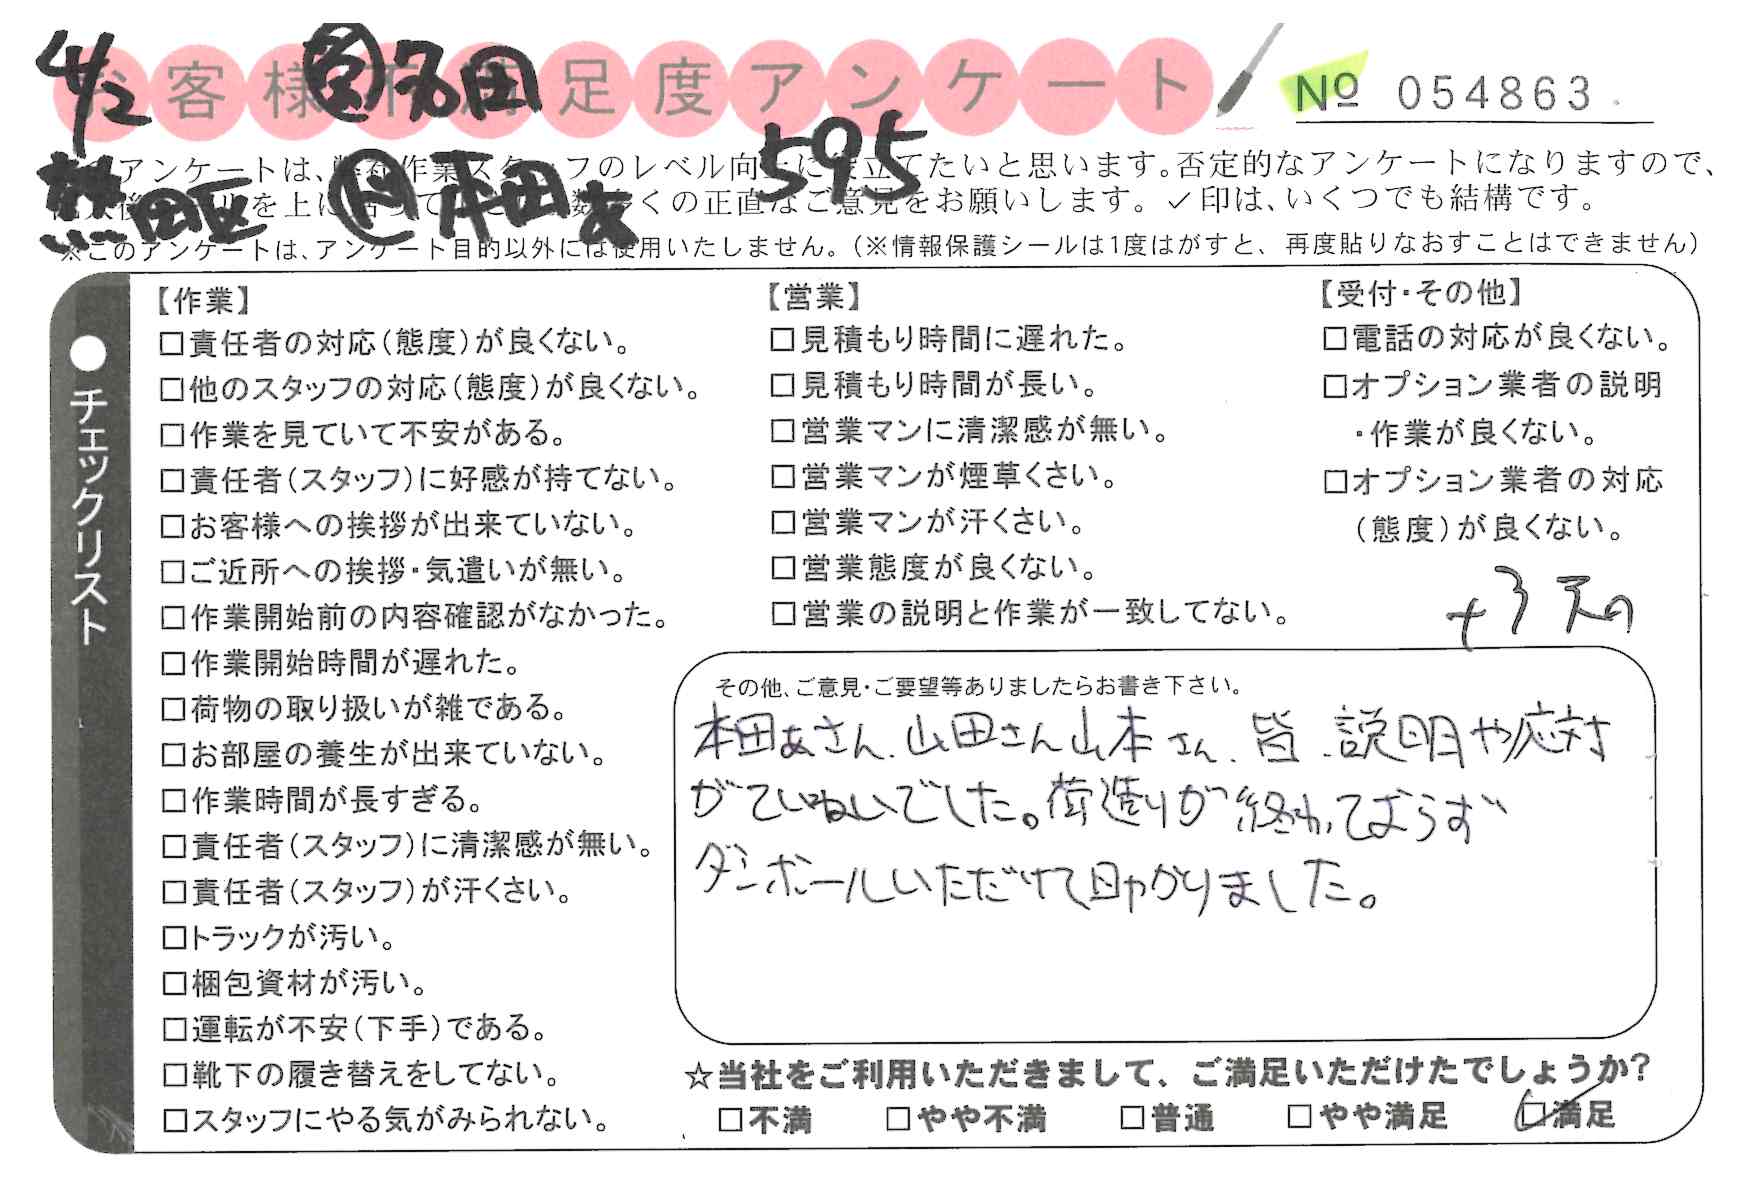 4/2 多田
お客様不満足度アンケート
№ 054863
595
アンケートは、弊社作業スタッフのレベル向上に役立てたいと思います。否定的なアンケートになりますので、
熱田区 本田あ
くの正直なご意見をお願いします。✓印は、いくつでも結構です。
※このアンケートは、アンケート目的以外には使用いたしません。(※情報保護シールは1度はがすと、再度貼りなおすことはできません)
●チェックリスト
【作業】
□責任者の対応(態度)が良くない。
□他のスタッフの対応(態度)が良くない。
□作業を見ていて不安がある。
□責任者(スタッフ)に好感が持てない。
□お客様への挨拶が出来ていない。
□ご近所への挨拶・気遣いが無い。
□作業開始前の内容確認がなかった。
□作業開始時間が遅れた。
□荷物の取り扱いが雑である。
□お部屋の養生が出来ていない。
□作業時間が長すぎる。
□責任者(スタッフ)に清潔感が無い。
□責任者(スタッフ)が汗くさい。
□トラックが汚い。
□梱包資材が汚い。
□運転が不安(下手)である。
□靴下の履き替えをしてない。
□スタッフにやる気がみられない。
【営業】
□見積もり時間に遅れた。
□見積もり時間が長い。
□営業マンに清潔感が無い。
□営業マンが煙草くさい。
□営業マンが汗くさい。
□営業態度が良くない。
□営業の説明と作業が一致してない。
【受付・その他】
□電話の対応が良くない。
□オプション業者の説明
・作業が良くない。
□オプション業者の対応
(態度)が良くない。
その他、ご意見・ご要望等ありましたらお書き下さい。
本田あさん、山田さん山本さん、皆、説明や応対
がていねいでした。荷造りが終わっておらず
ダンボールいただけて助かりました。
☆当社をご利用いただきまして、ご満足いただけたでしょうか?
□不満 □やや不満 □普通 □やや満足 ☑満足